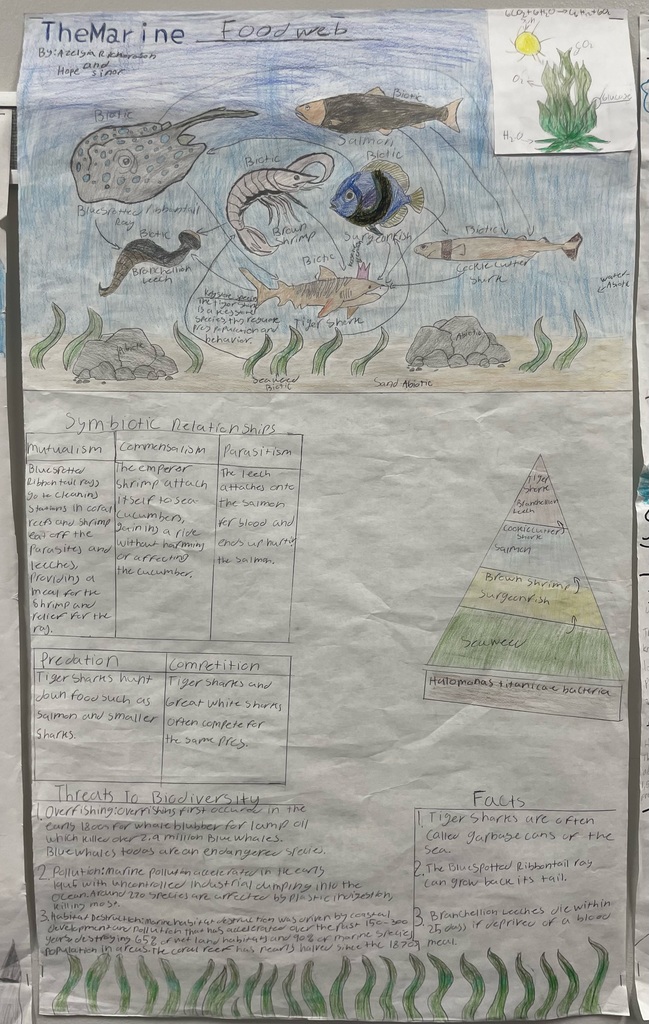 The Marine Foodweb
Hope and Simor
6CO2+6H2O
CO2
O2
Glucose
H2O
Biotic
Bluespotted ribbontail
Ray
Biotic
Salmon
Biotic
Brown
Shrimp
Biotic
Surgeonfish
Biotic
Cookiecutter
Shark
Biotic
Branchellion
leech
Biotic
Tiger Shark
Keystone species
The Tiger Shark
behavior.
water-
Abiotic
Abiotic
Abiotic
Seaweed
Biotic
Sand Abiotic
Symbiotic Relationships
Mutualism
Bluespotted
Ribbontail rays
go to cleaning
stations in coral
reefs and shrimp
eat off the
parasites and
leeches,
providing a
meal for the
shrimp and
relief for the
ray.
Commensalism
The emperor
shrimp attach
itself to sea
cucumbers,
gaining a ride
without harming
or affecting
the cucumber.
Parasitism
The leech
attaches onto
the salmon
for blood and
ends up hurting
the salmon.
Predation
Tiger Sharks hunt
down food such as
salmon and smaller
Sharks.
Competition
Tiger Sharks and
Great white sharks
often compete for
the same prey.
Tiger
Shark
Branchellion
Leech
Cookiecutter
Shark
Salmon
Brown Shrimp
Surgeonfish
Seaweed
Halomonas titanicae bacteria
Threats To Biodiversity
1. Overfishing: overfishing first occured in the
early 1800s for whale blubber for lamp oil
which killed over 2.9 million Blue whales.
Blue whales today are an endangered species.
2. Pollution: Marine pollution accelerated in the early
with uncontrolled industrial dumping into the
ocean. Around 270 species are affected by plastic indigestion,
killing most.
3. Habitat Destruction: Marine habitat destruction was driven by coastal
development and pollution that has accelerated over the past 150-300
years destroying 65% of wet land habitats and 90% of marine species
population in areas. the coral reef has nearly halved since the 1870s
Facts
1. Tiger Sharks are often
called garbage cans of the
sea.
2. The Bluespotted Ribbontail ray
can grow back its tail.
3. Branchellion leeches die within
25 days if deprived of a blood
meal.